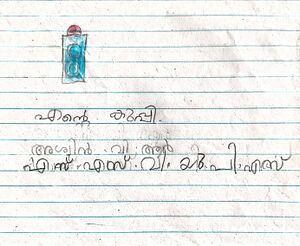 എന്റെ കുപ്പി.
അശ്വിൻ വി ആർ
എസ്.എസ്.വി.യു.പി.എസ്